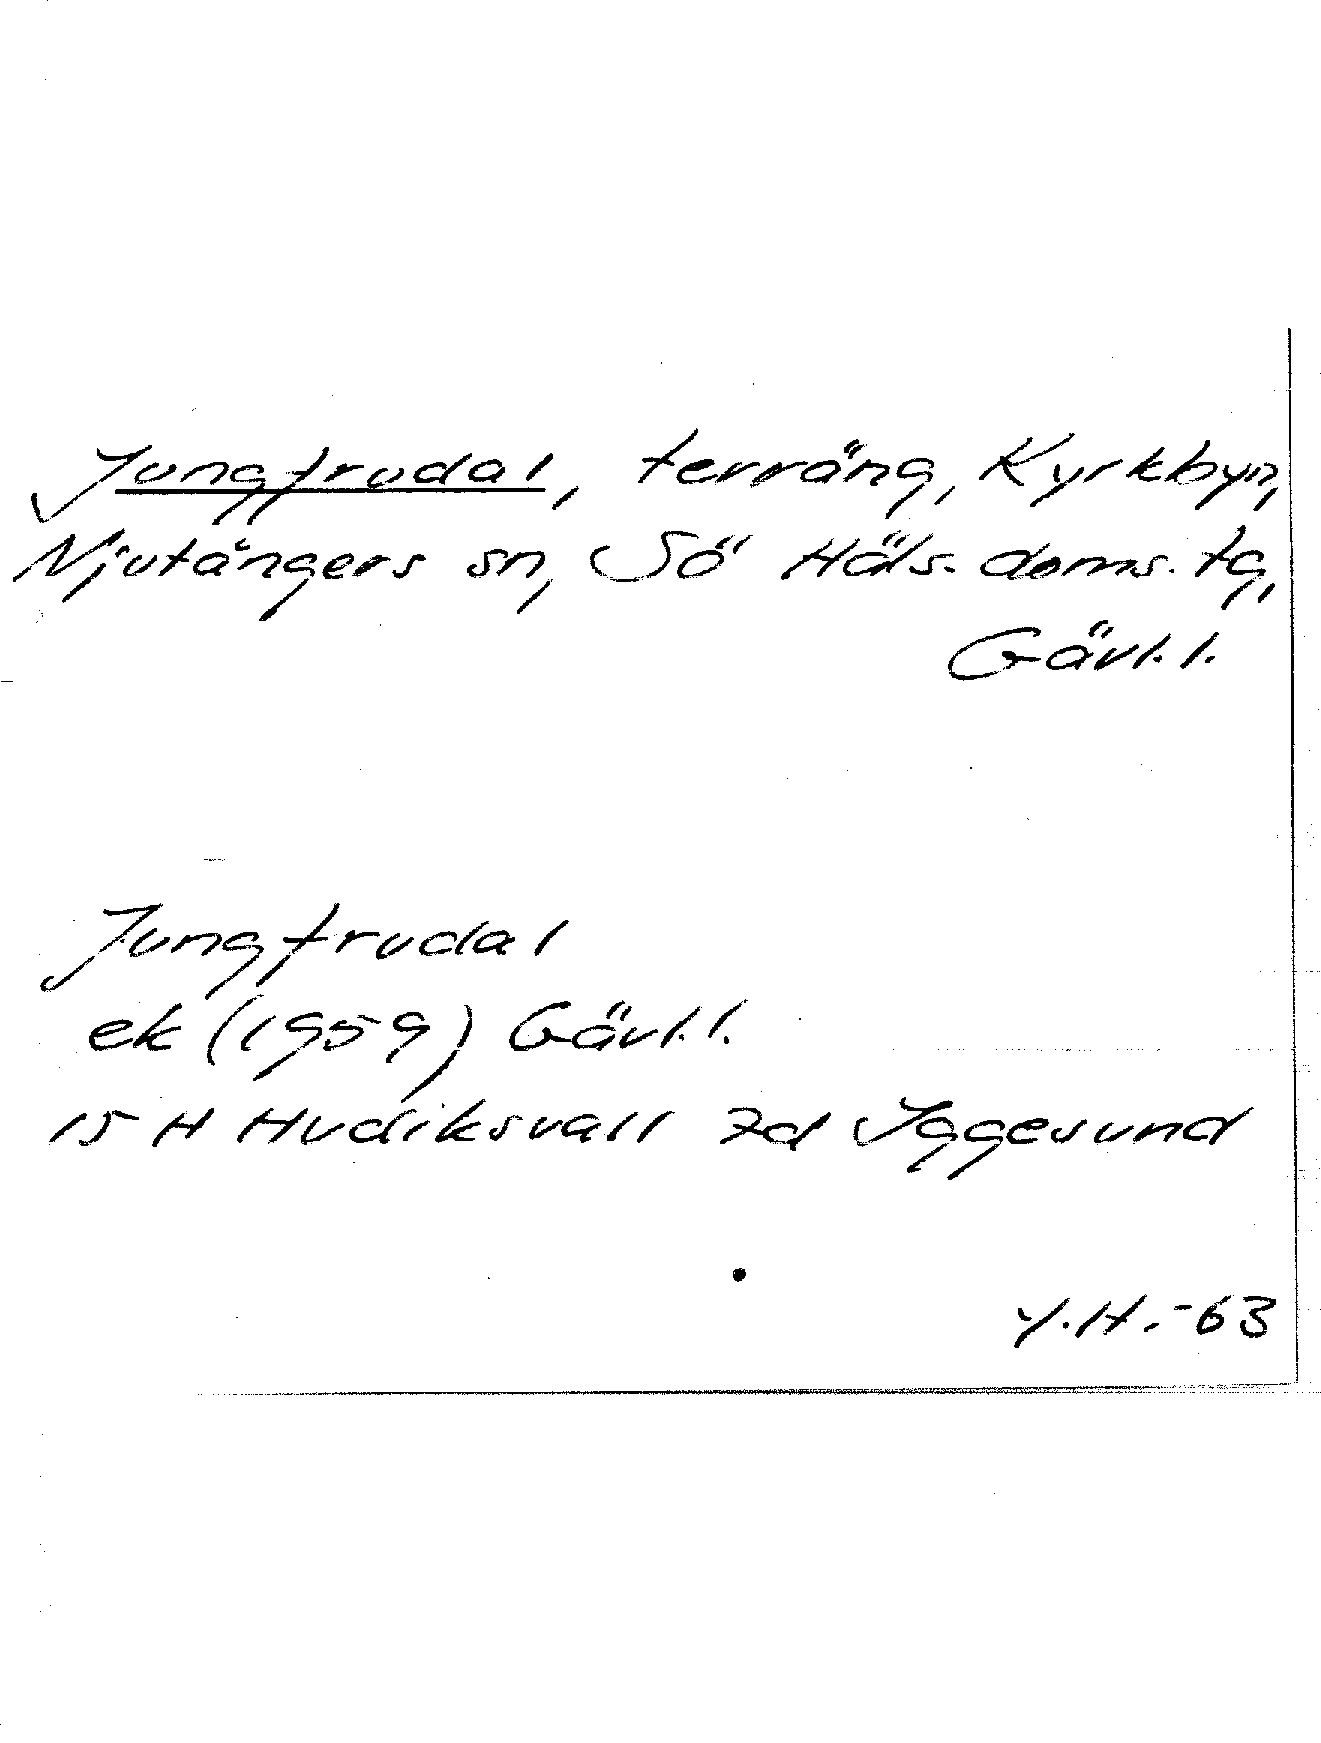 Jungfrudal, terräng, Kyrkbyn,
Njutångers sn, Sö Häls. doms. tg,
Gävl. l.
Jungfrudal
ek (1959) Gävl. l.
15 H Hudiksvall 7d Iggesund
Y.H.-63